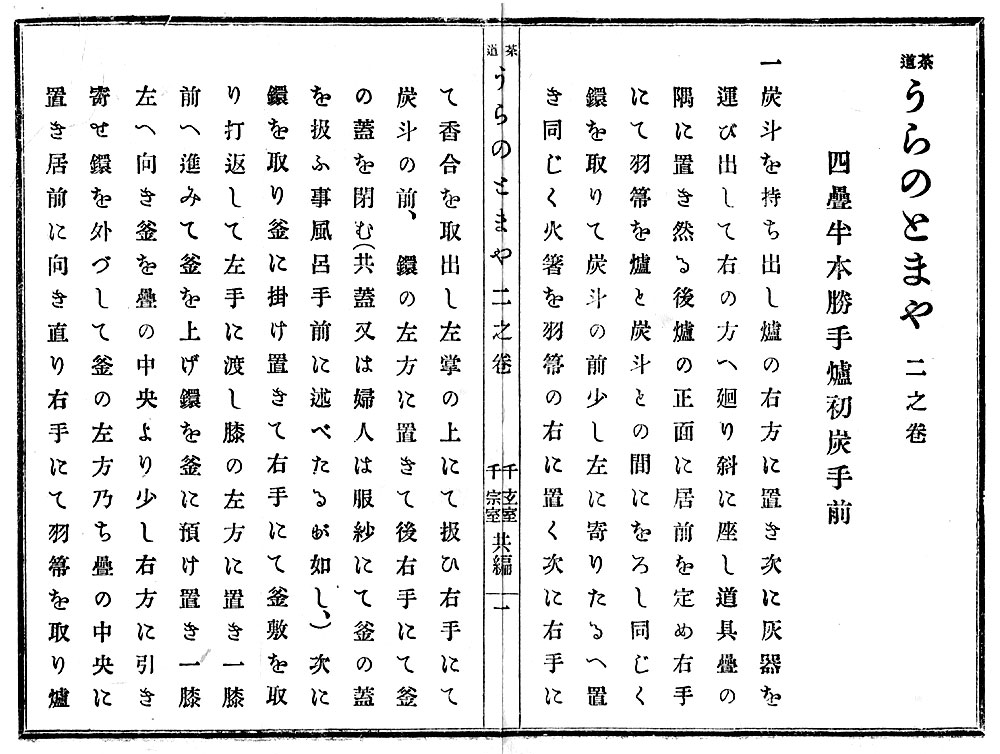 茶道 うらのとまや 二之卷
四疊半本勝手爐初炭手前
一炭斗を持ち出し爐の右方に置き次に灰器を
運び出して右の方へ廻り斜に座し道具疊の
隅に置き然る後爐の正面に居前を定め右手
にて羽箒を爐と炭斗との間にをろし同じく
鐶を取りて炭斗の前少し左に寄りたるへ置
き同じく火箸を羽箒の右に置く次に右手に
茶道 うらのとまや 二之卷 千玄室 千宗室 共編 一
て香合を取出し左掌の上にて扱ひ右手にて
炭斗の前、鐶の左方に置きて後右手にて釜
の蓋を閉む(共蓋又は婦人は服紗にて釜の蓋
を扱ふ事風呂手前に述べたるが如し、)次に
鐶を取り釜に掛け置きて右手にて釜敷を取
り打返して左手に渡し膝の左方に置き一膝
前へ進みて釜を上げ鐶を釜に預け置き一膝
左へ向き釜を疊の中央より少し右方に引き
寄せ鐶を外づして釜の左方乃ち疊の中央に
置き居前に向き直り右手にて羽箒を取り爐